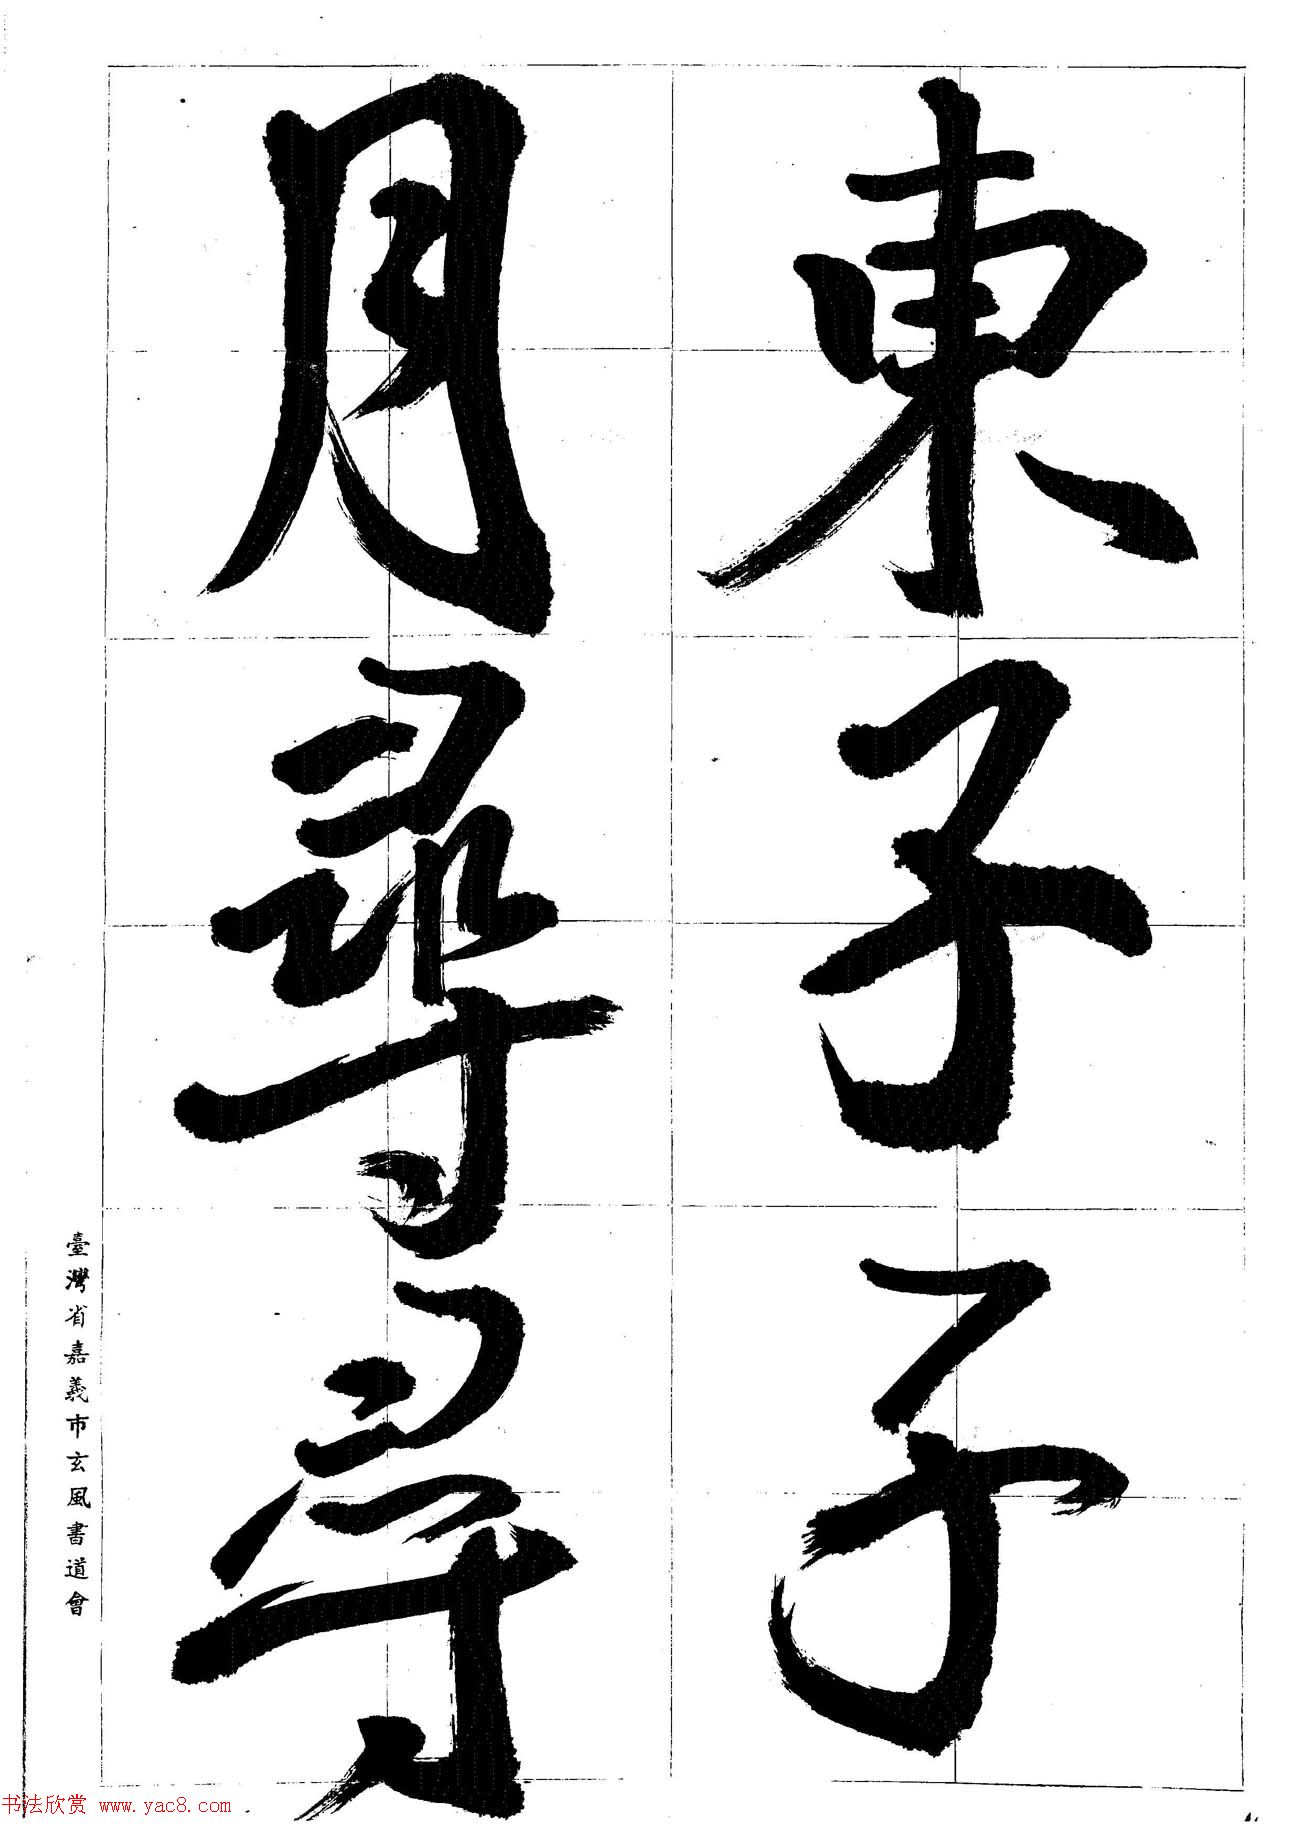 東子子
月尋尋
臺灣省嘉義市玄風書道會
书法欣赏 www.yac8.com